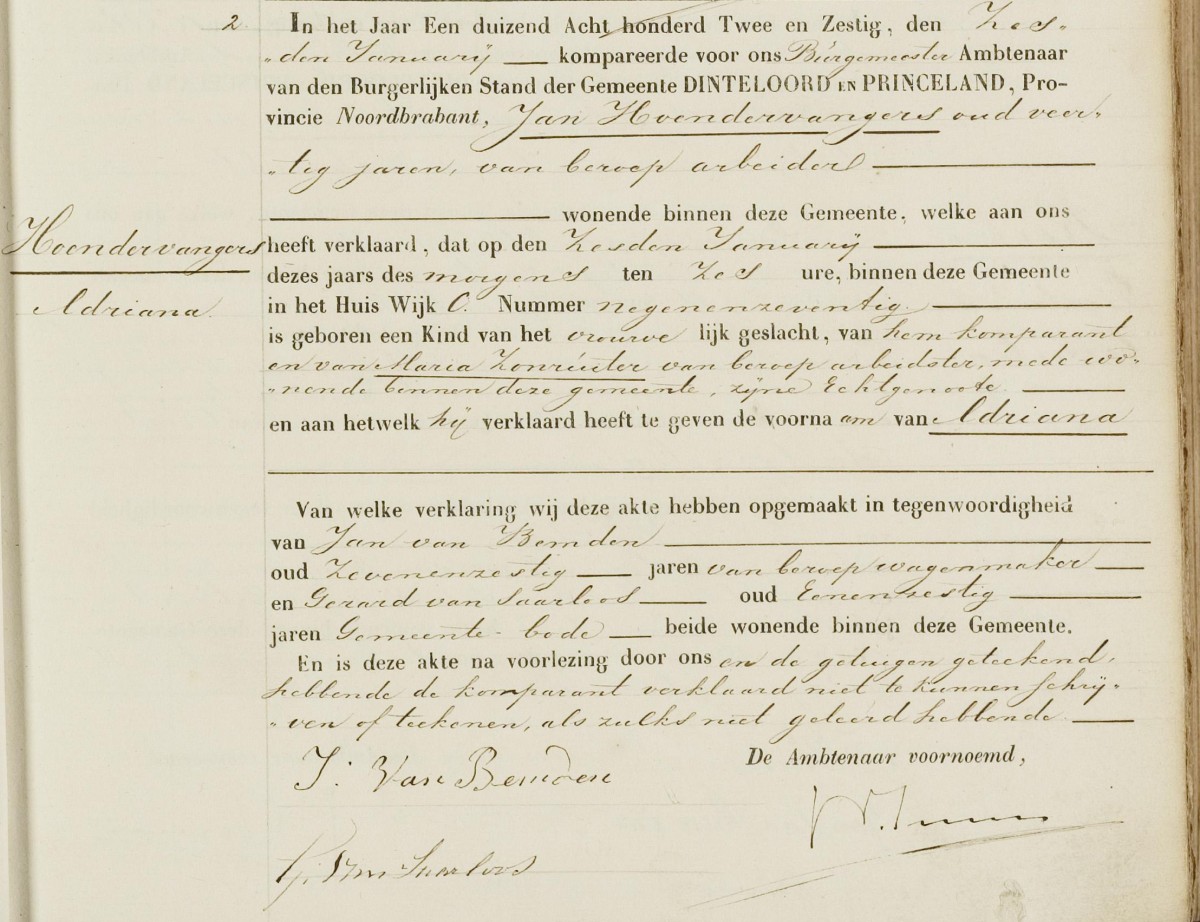 2 In het Jaar Een duizend Acht honderd Twee en Zestig, den Zes-
"den Januarij kompareerde voor ons Burgemeester Ambtenaar
van den Burgerlijken Stand der Gemeente DINTELOORD EN PRINCELAND, Pro-
vincie Noordbrabant, Jan Hoendervangers oud veer-
"tig jaren, van beroep arbeider
wonende binnen deze Gemeente, welke aan ons
Hoendervangers
Adriana.
heeft verklaard, dat op den Zesden Januarij
dezes jaars des morgens ten Zes ure, binnen deze Gemeente
in het Huis Wijk C. Nummer negenenzeventig.
is geboren een Kind van het vrouwe lijk geslacht, van hem komparant
en van Maria Konruiter van beroep arbeidster, mede wo-
"nende binnen deze gemeente, zijne Echtgenoote.
en aan hetwelk hij verklaard heeft te geven de voorna am van Adriana
Van welke verklaring wij deze akte hebben opgemaakt in tegenwoordigheid
van Jan van Bemden
oud Zevenenzestig jaren van beroep wagenmaker
en Gerard van Saarloos oud Eenenzestig
jaren Gemeente-bode beide wonende binnen deze Gemeente.
En is deze akte na voorlezing door ons en de getuigen geteekend,
hebbende de komparant verklaard niet te kunnen schrij-
"ven of teekenen, als zulks niet geleerd hebbende.
De Ambtenaar voornoemd,
J: Van Bemden
G: Van Saarloos